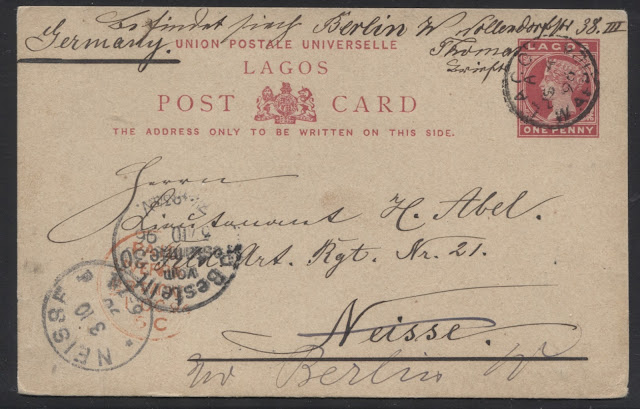 Befindet sich Berlin W Nollendorfstr 38. III
Germany.
UNION POSTALE UNIVERSELLE
LAGOS
POST CARD
THE ADDRESS ONLY TO BE WRITTEN ON THIS SIDE.
LAGOS
ONE PENNY
LAGOS
W
Herrn
Lieutenant H. Abel.
Art. Rgt. Nr. 21.
Neisse.
Berlin W
Bestellt
vom
Postamte
3/10
96
NEISSE
3.10